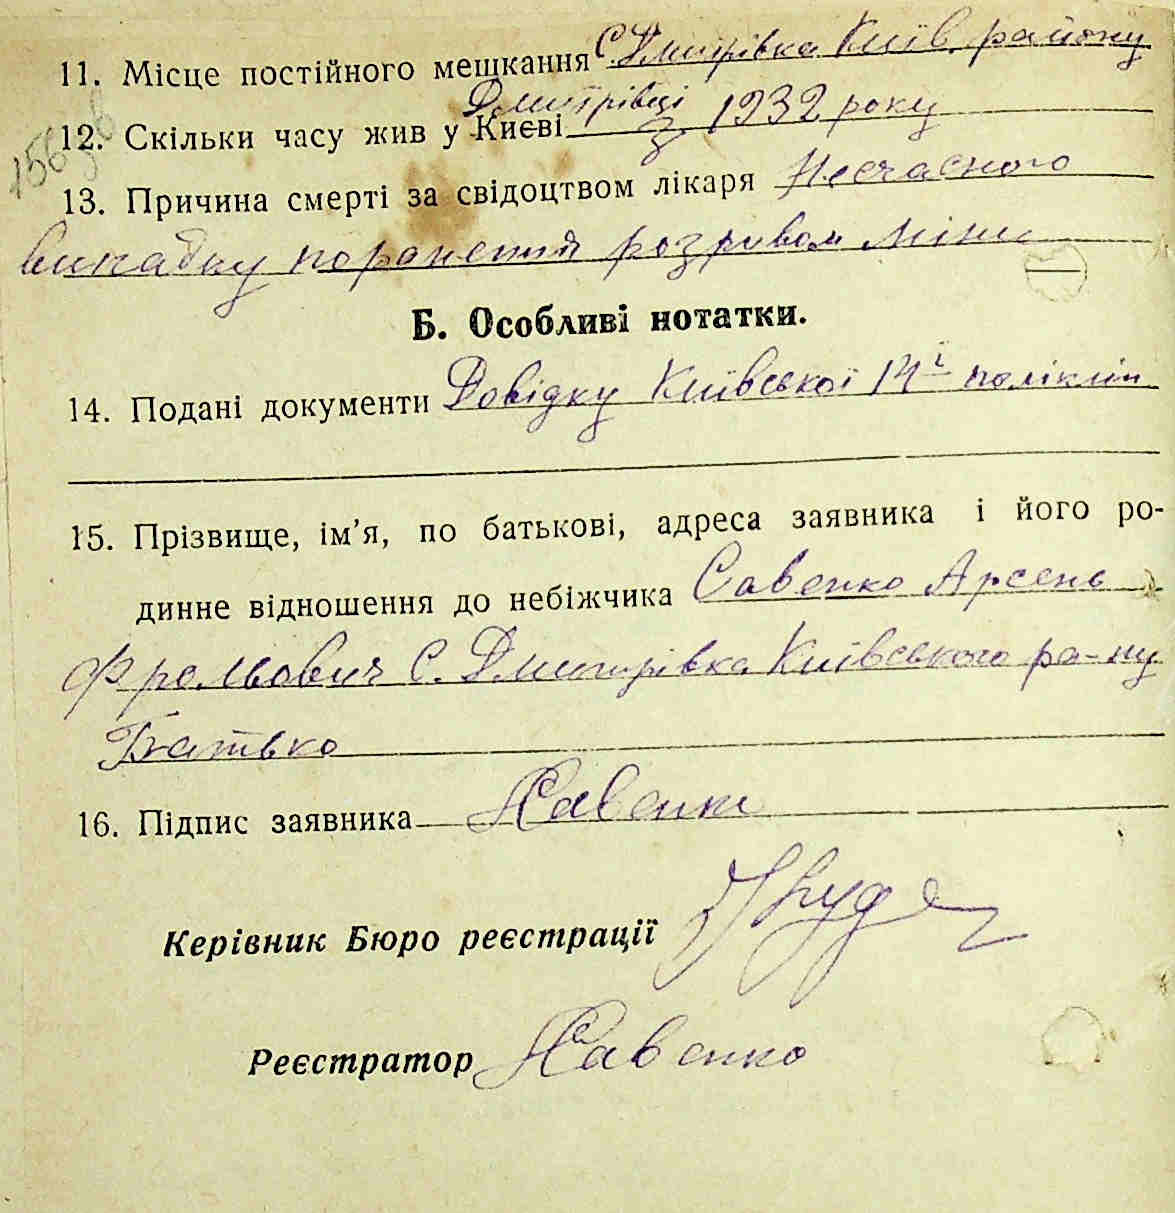 11. Місце постійного мешкання С. Дмитрівка Київ. району
Дмитрівці
12. Скільки часу жив у Києві з 1932 року
13. Причина смерті за свідоцтвом лікаря Нещасного
випадку поранення розривом міни
Б. Особливі нотатки.
14. Подані документи Довідку Київської 14ї поліклін
15. Прізвище, ім’я, по батькові, адреса заявника і його ро-
динне відношення до небіжчика Савенко Арсень
Фролович С. Дмитрівка Київського ра-ну
Батько
16. Підпис заявника Савенко
Керівник Бюро реєстрації
Реєстратор Савенко